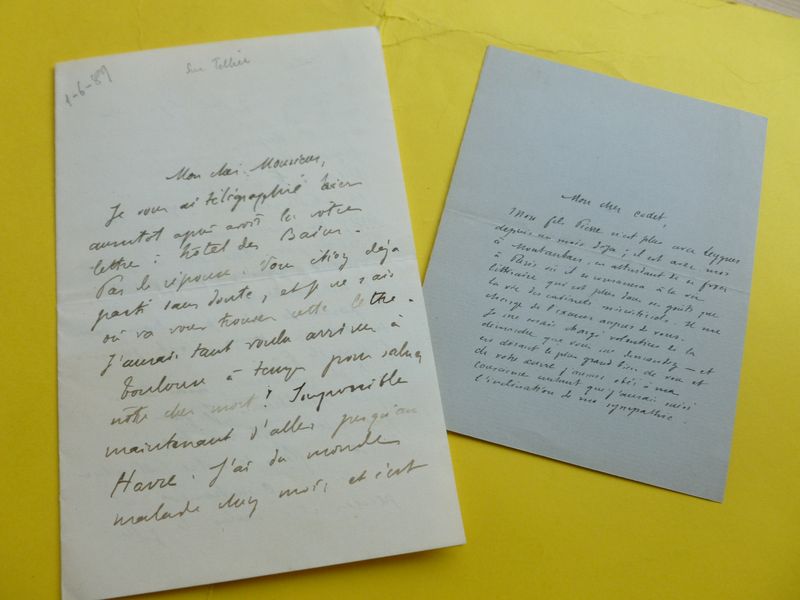 1-6-89
Sur Tellier
Mon cher Monsieur,
Je vous ai télégraphié hier
aussitôt après avoir lu votre
lettre : hôtel des Bains.
Pas de réponse. Vous étiez déjà
parti sans doute, et je ne sais
où va vous trouver cette lettre.
J'aurais tant voulu arriver à
Toulouse à temps pour saluer
notre cher mort ! Impossible
maintenant d'aller jusqu'au
Havre. J'ai du monde
malade chez moi, et c'est
Mon cher cadet,
Mon fils Pierre n'est plus avec Leygues
depuis un mois déjà ; il est avec moi
à Montauban, en attendant de se fixer
à Paris où il se consacrera à la vie
littéraire qui est plus dans ses goûts que
la vie des cabinets ministériels. Il me
charge de l'excuser auprès de vous.
Je me serais chargé volontiers de la
demande que vous me demandez – et
en disant le plus grand bien de vous et
de votre œuvre j'aurais obéi à ma
conscience autant que j'aurais suivi
l'inclination de ma sympathie.